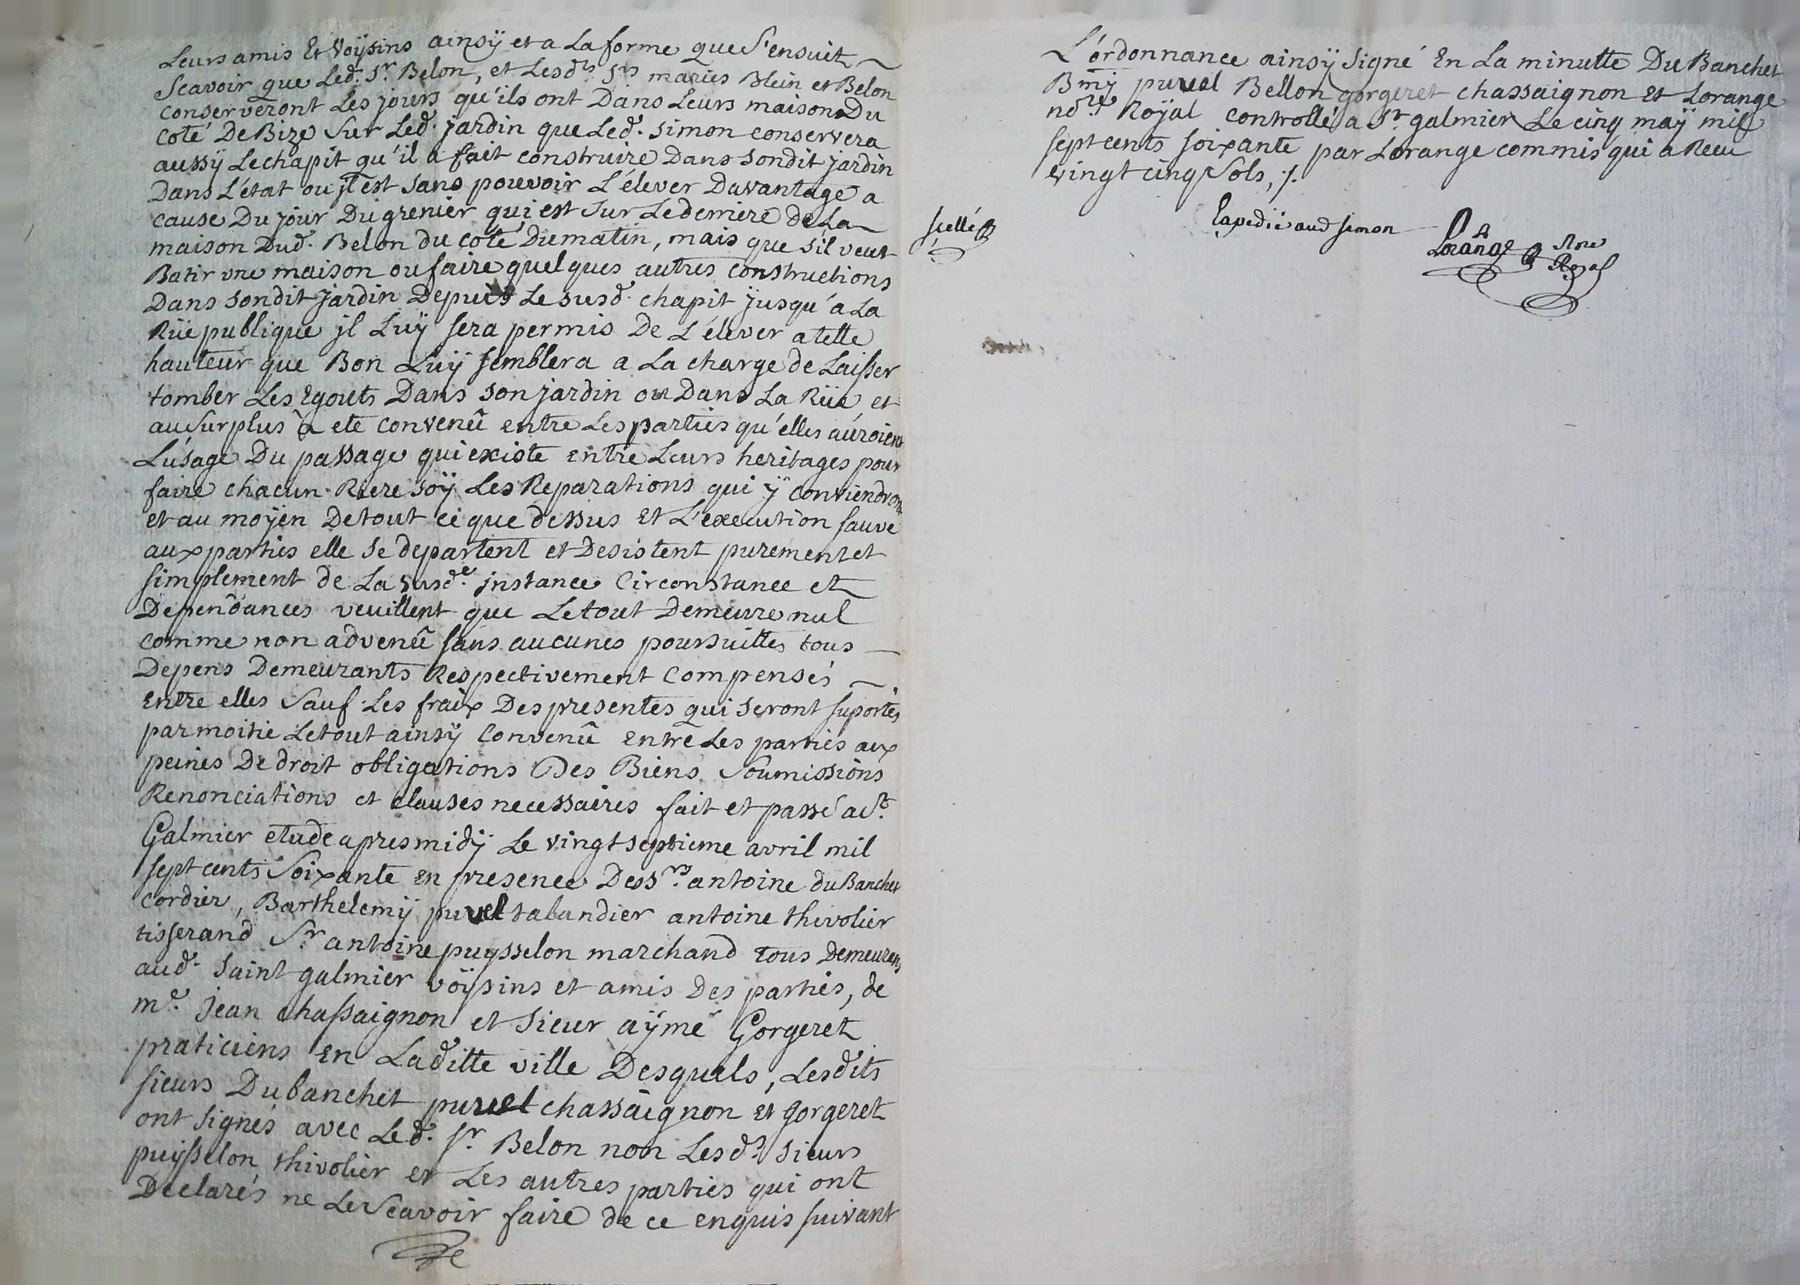 Leurs amis Et Voÿsins ainsÿ et a La forme que S'ensuit
Scavoir que Led. Sr. Belon, et Lesds. Srs maries Blein et Belon
conserveront Les jours qu'ils ont Dans Leurs maisons Du
coté De Bize Sur Led. jardin que Led. Simon conservera
aussÿ Le chapit qu'il a fait construire Dans Sondit jardin
Dans L'état ou jl est Sans pouvoir L'élever Davantage a
cause Du jour Du grenier qui est Sur Le derriere de La
maison Dud. Belon du coté Du matin, mais que S'il veut
Batir une maison ou faire quelques autres constructions
Dans Sondit jardin Depuis Le susd. chapit jusqu'a La
Rüe publique jl Luÿ Sera permis De L'élever a telle
hauteur que Bon Luÿ Semblera a La charge de Laisser
tomber Les Egouts Dans Son jardin ou Dans La Rüe et
au Surplus a eté convenû entre Les parties qu'elles auroient
L'usage Du passage qui existe entre Leurs heritages pour
faire chacun Riere Soÿ Les Reparations qui ÿ conviendront
et au moÿen De tout ce que dessus Et L'execution sauve
aux parties elle se departent et Desistent purement et
simplement de La susde. jnstance Circonstance et
Dependances veuillent que Le tout Demeure nul
comme non advenû sans aucunes poursuittes tous
Depens Demeurants Respectivement Compensés
Entre elles Sauf Les fraix Des presentes qui Seront suportés
par moitié Le tout ainsÿ Convenû entre Les parties aux
peines De droit obligations Des Biens Soumissions
Renonciations et clauses necessaires fait et passé a St.
Galmier etude apres midÿ Le vingt septieme avril mil
sept cents Soixante En presence Des Srs. antoine du Banchet
cordier, Barthelemÿ puvel tabandier antoine thivolier
tisserand Sr antoine puysselon marchand tous Demeurens
aud. Saint galmier voÿsins et amis Des parties, de
me. Jean chassaignon et Sieur aÿmé Gorgeret
praticiens En Laditte ville Desquels, Lesdits
sieurs Dubanchet puvel chassaignon et gorgeret
ont signés avec Led. Sr. Belon non Lesds. Sieurs
puysselon thivolier et Les autres parties qui ont
Declarés ne Le Scavoir faire de ce enquis suivant
L'ordonnance ainsÿ Signé En La minutte Du Banchet
Bmÿ puvel Bellon gorgeret chassaignon et Lorange
nore. Roÿal controllé a St galmier Le cinq maÿ mil
sept cents soixante par Lorange commis qui a Receu
vingt cinq Sols, /.
scellé
Expedié aud Simon
Lorange Nre
Royal